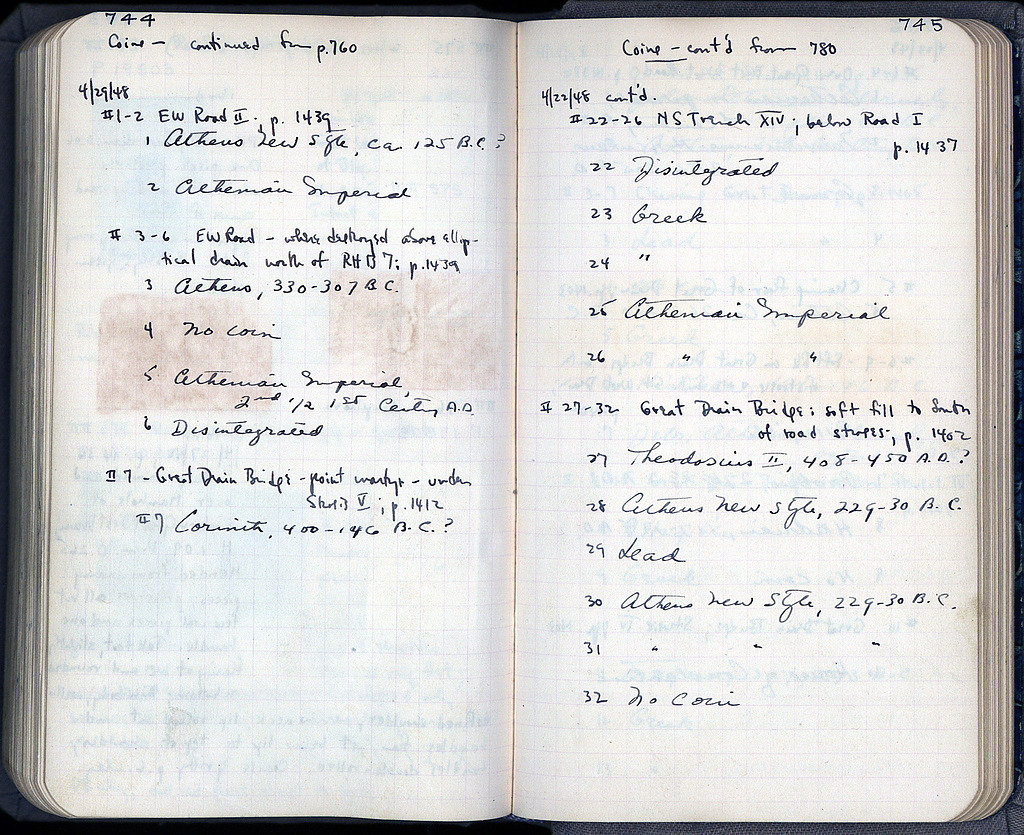 744
Coins – continued from p.760
4/29/48
#1-2 EW Road II. p. 1439
1 Athens New Style, ca. 125 B.C.?
2 Athenian Imperial
# 3-6 EW Road – where destroyed above ellip-
tical drain north of RHB 7: p.1439
3 Athens, 330-307 B.C.
4 No coin
5 Athenian Imperial,
2nd 1/2 1st Century A.D.
6 Disintegrated
#7 - Great Drain Bridge - point - under
V; p.1412
#7 Corinth, 400-146 B.C.?
745
Coins – cont'd from 780
4/22/48 cont'd.
#22-26 NS Trench XIV; below Road I
p. 1437
22 Disintegrated
23 Greek
24 "
25 Athenian Imperial
26 " "
# 27-32 Great Drain Bridge: soft fill to South
of road stroses, p. 1402
27 Theodosius II, 408-450 A.D.?
28 Athens New Style, 229-30 B.C.
29 Lead
30 Athens New Style, 229-30 B.C.
31 " " "
32 No Coin